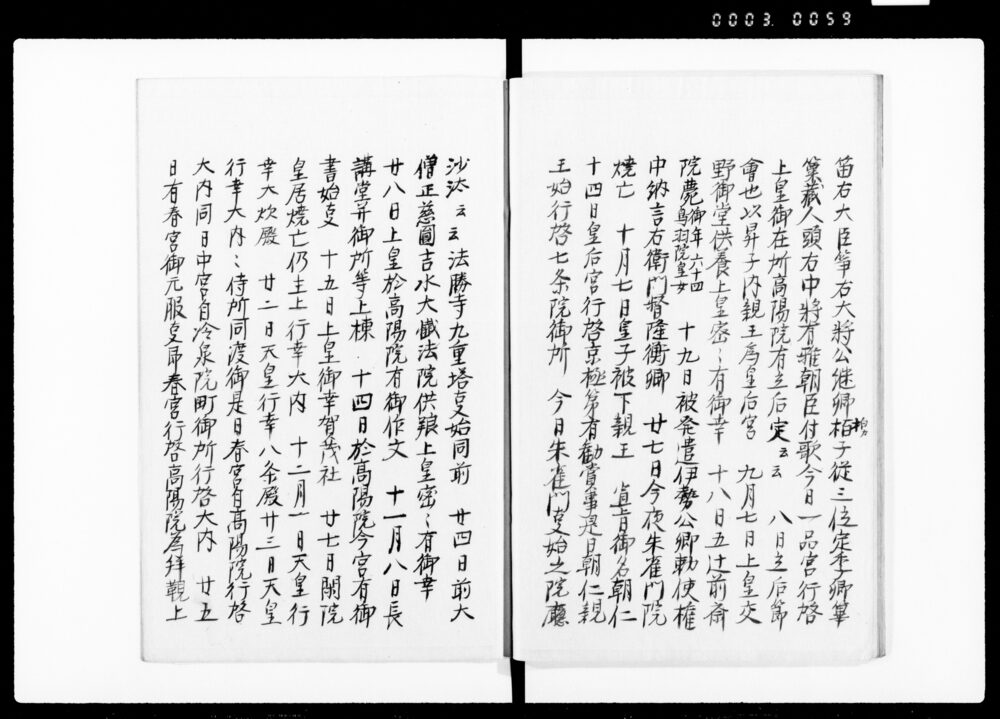 0003 0059
笛右大臣箏右大将公継卿拍子従三位定季卿篳
拍カ
篥蔵人頭右中将有雅朝臣付歌今日一品宮行啓
上皇御在所高陽院有立后定云云　八日立后節
會也以昇子内親王為皇后宮　九月七日上皇交
野御堂供養上皇密々有御幸　十八日五辻前斎
院薨御年六十四鳥羽院皇女　十九日被発遣伊勢公卿勅使権
中納言右衛門督隆衡卿　廿七日今夜朱雀門院
焼亡　十月七日皇子被下親王　宣旨御名朝仁
十四日皇后宮行啓京極第有勧賞事是日朝仁親
王始行啓七条院御所　今日朱雀門事始之院廳
沙汰云云法勝寺九重塔事始同前　廿四日前大
僧正慈圓吉水大懺法院供養上皇密々有御幸
廿八日上皇於高陽院有御作文　十一月八日長
講堂并御所等上棟　十四日於高陽院今宮有御
書始事　十五日上皇御幸賀茂社　廿七日閑院
皇居焼亡仍主上行幸大内　十二月一日天皇行
幸大炊殿　廿二日天皇行幸八条殿廿三日天皇
行幸大内々侍所同渡御是日春宮自高陽院行啓
大内同日中宮自冷泉院町御所行啓大内　廿五
日有春宮御元服事昴春宮行啓高陽院為拝覲上